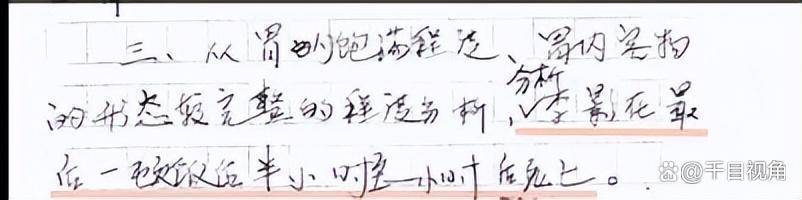 三、从胃的饱满程度、胃内容物
的形态较完整的程度分析,分析李影在最
后一顿饭后半小时至一小时后死亡。
千目视角